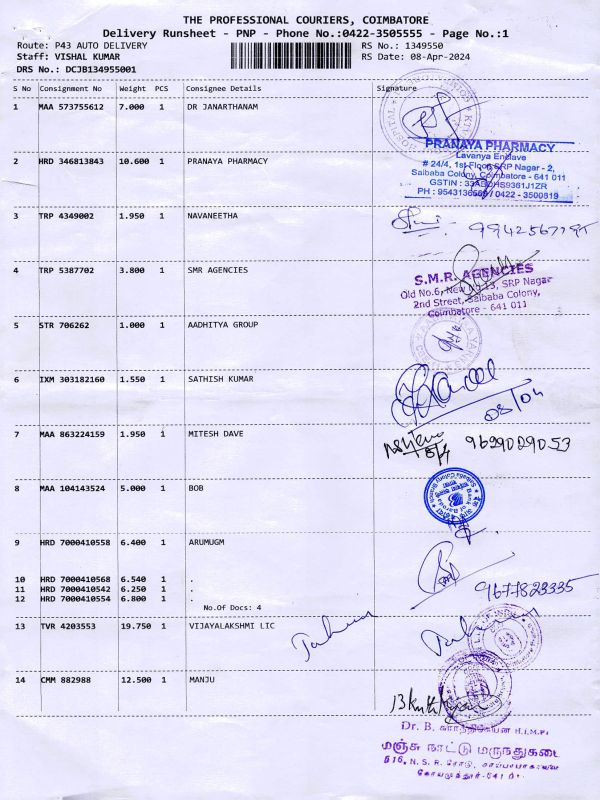 THE PROFESSIONAL COURIERS, COIMBATORE
Delivery Runsheet - PNP - Phone No.:0422-3505555 - Page No.:1
Route: P43 AUTO DELIVERY RS No.: 1349550
Staff: VISHAL KUMAR RS Date: 08-Apr-2024
DRS No.: DCJB134955001
S No Consignment No Weight PCS Consignee Details Signature
1 MAA 573755612 7.000 1 DR JANARTHANAM
HOSPITAL
PRANAYA PHARMACY
Lavanya Enclave
2 HRD 346813843 10.600 1 PRANAYA PHARMACY
# 24/4, 1st Floor, SRP Nagar - 2,
Saibaba Colony, Coimbatore - 641 011
GSTIN :
PH : 0422 - 3500819
3 TRP 4349002 1.950 1 NAVANEETHA
4 TRP 5387702 3.800 1 SMR AGENCIES
S.M.R. AGENCIES
Old No.6, New No.13, SRP Nagar
2nd Street, Saibaba Colony,
Coimbatore - 641 011
5 STR 706262 1.000 1 AADHITYA GROUP
6 IXM 303182160 1.550 1 SATHISH KUMAR
08/04
7 MAA 863224159 1.950 1 MITESH DAVE
8/4 9629029053
8 MAA 104143524 5.000 1 BOB
Bank of Baroda
Saibaba Colony Branch
9 HRD 7000410558 6.400 1 ARUMUGM
10 HRD 7000410568 6.540 1 .
11 HRD 7000410542 6.250 1 .
12 HRD 7000410554 6.800 1 .
9677823335
No.Of Docs: 4
13 TVR 4203553 19.750 1 VIJAYALAKSHMI LIC
14 CMM 882988 12.500 1 MANJU
Dr. B. கார்த்திகேயன் H.I.M.P.
மஞ்சு நாட்டு மருந்துகடை
516, N. S. R. ரோடு,
கோயமுத்தூர்-641